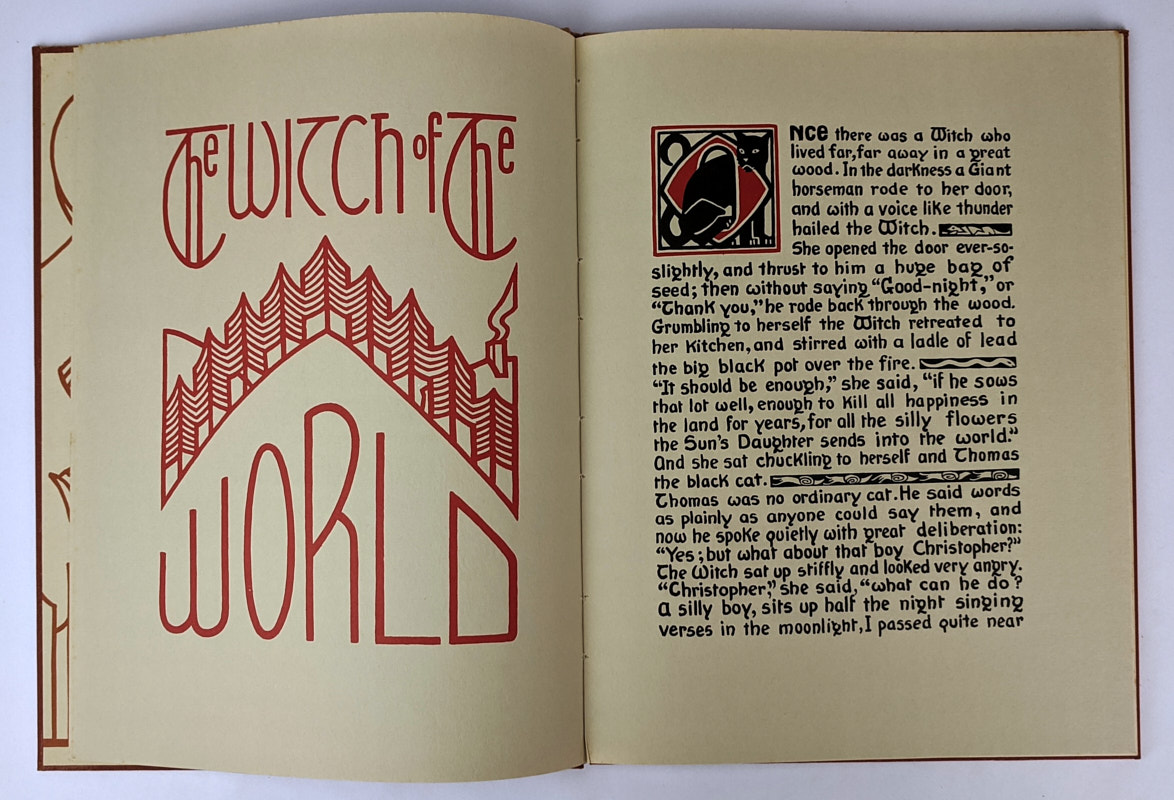 The WITCH of The
WORLD
ONCE there was a Witch who
lived far, far away in a great
wood. In the darkness a Giant
horseman rode to her door,
and with a voice like thunder
hailed the Witch.
She opened the door ever-so-
slightly, and thrust to him a huge bag of
seed; then without saying “Good-night,” or
“Thank you,” he rode back through the wood.
Grumbling to herself the Witch retreated to
her Kitchen, and stirred with a ladle of lead
the big black pot over the fire.
“It should be enough,” she said, “if he sows
that lot well, enough to kill all happiness in
the land for years, for all the silly flowers
the Sun’s Daughter sends into the world.”
And she sat chuckling to herself and Thomas
the black cat.
Thomas was no ordinary cat. He said words
as plainly as anyone could say them, and
now he spoke quietly with great deliberation:
“Yes; but what about that boy Christopher?”
The Witch sat up stiffly and looked very angry.
“Christopher,” she said, “what can he do?
A silly boy, sits up half the night singing
verses in the moonlight, I passed quite near